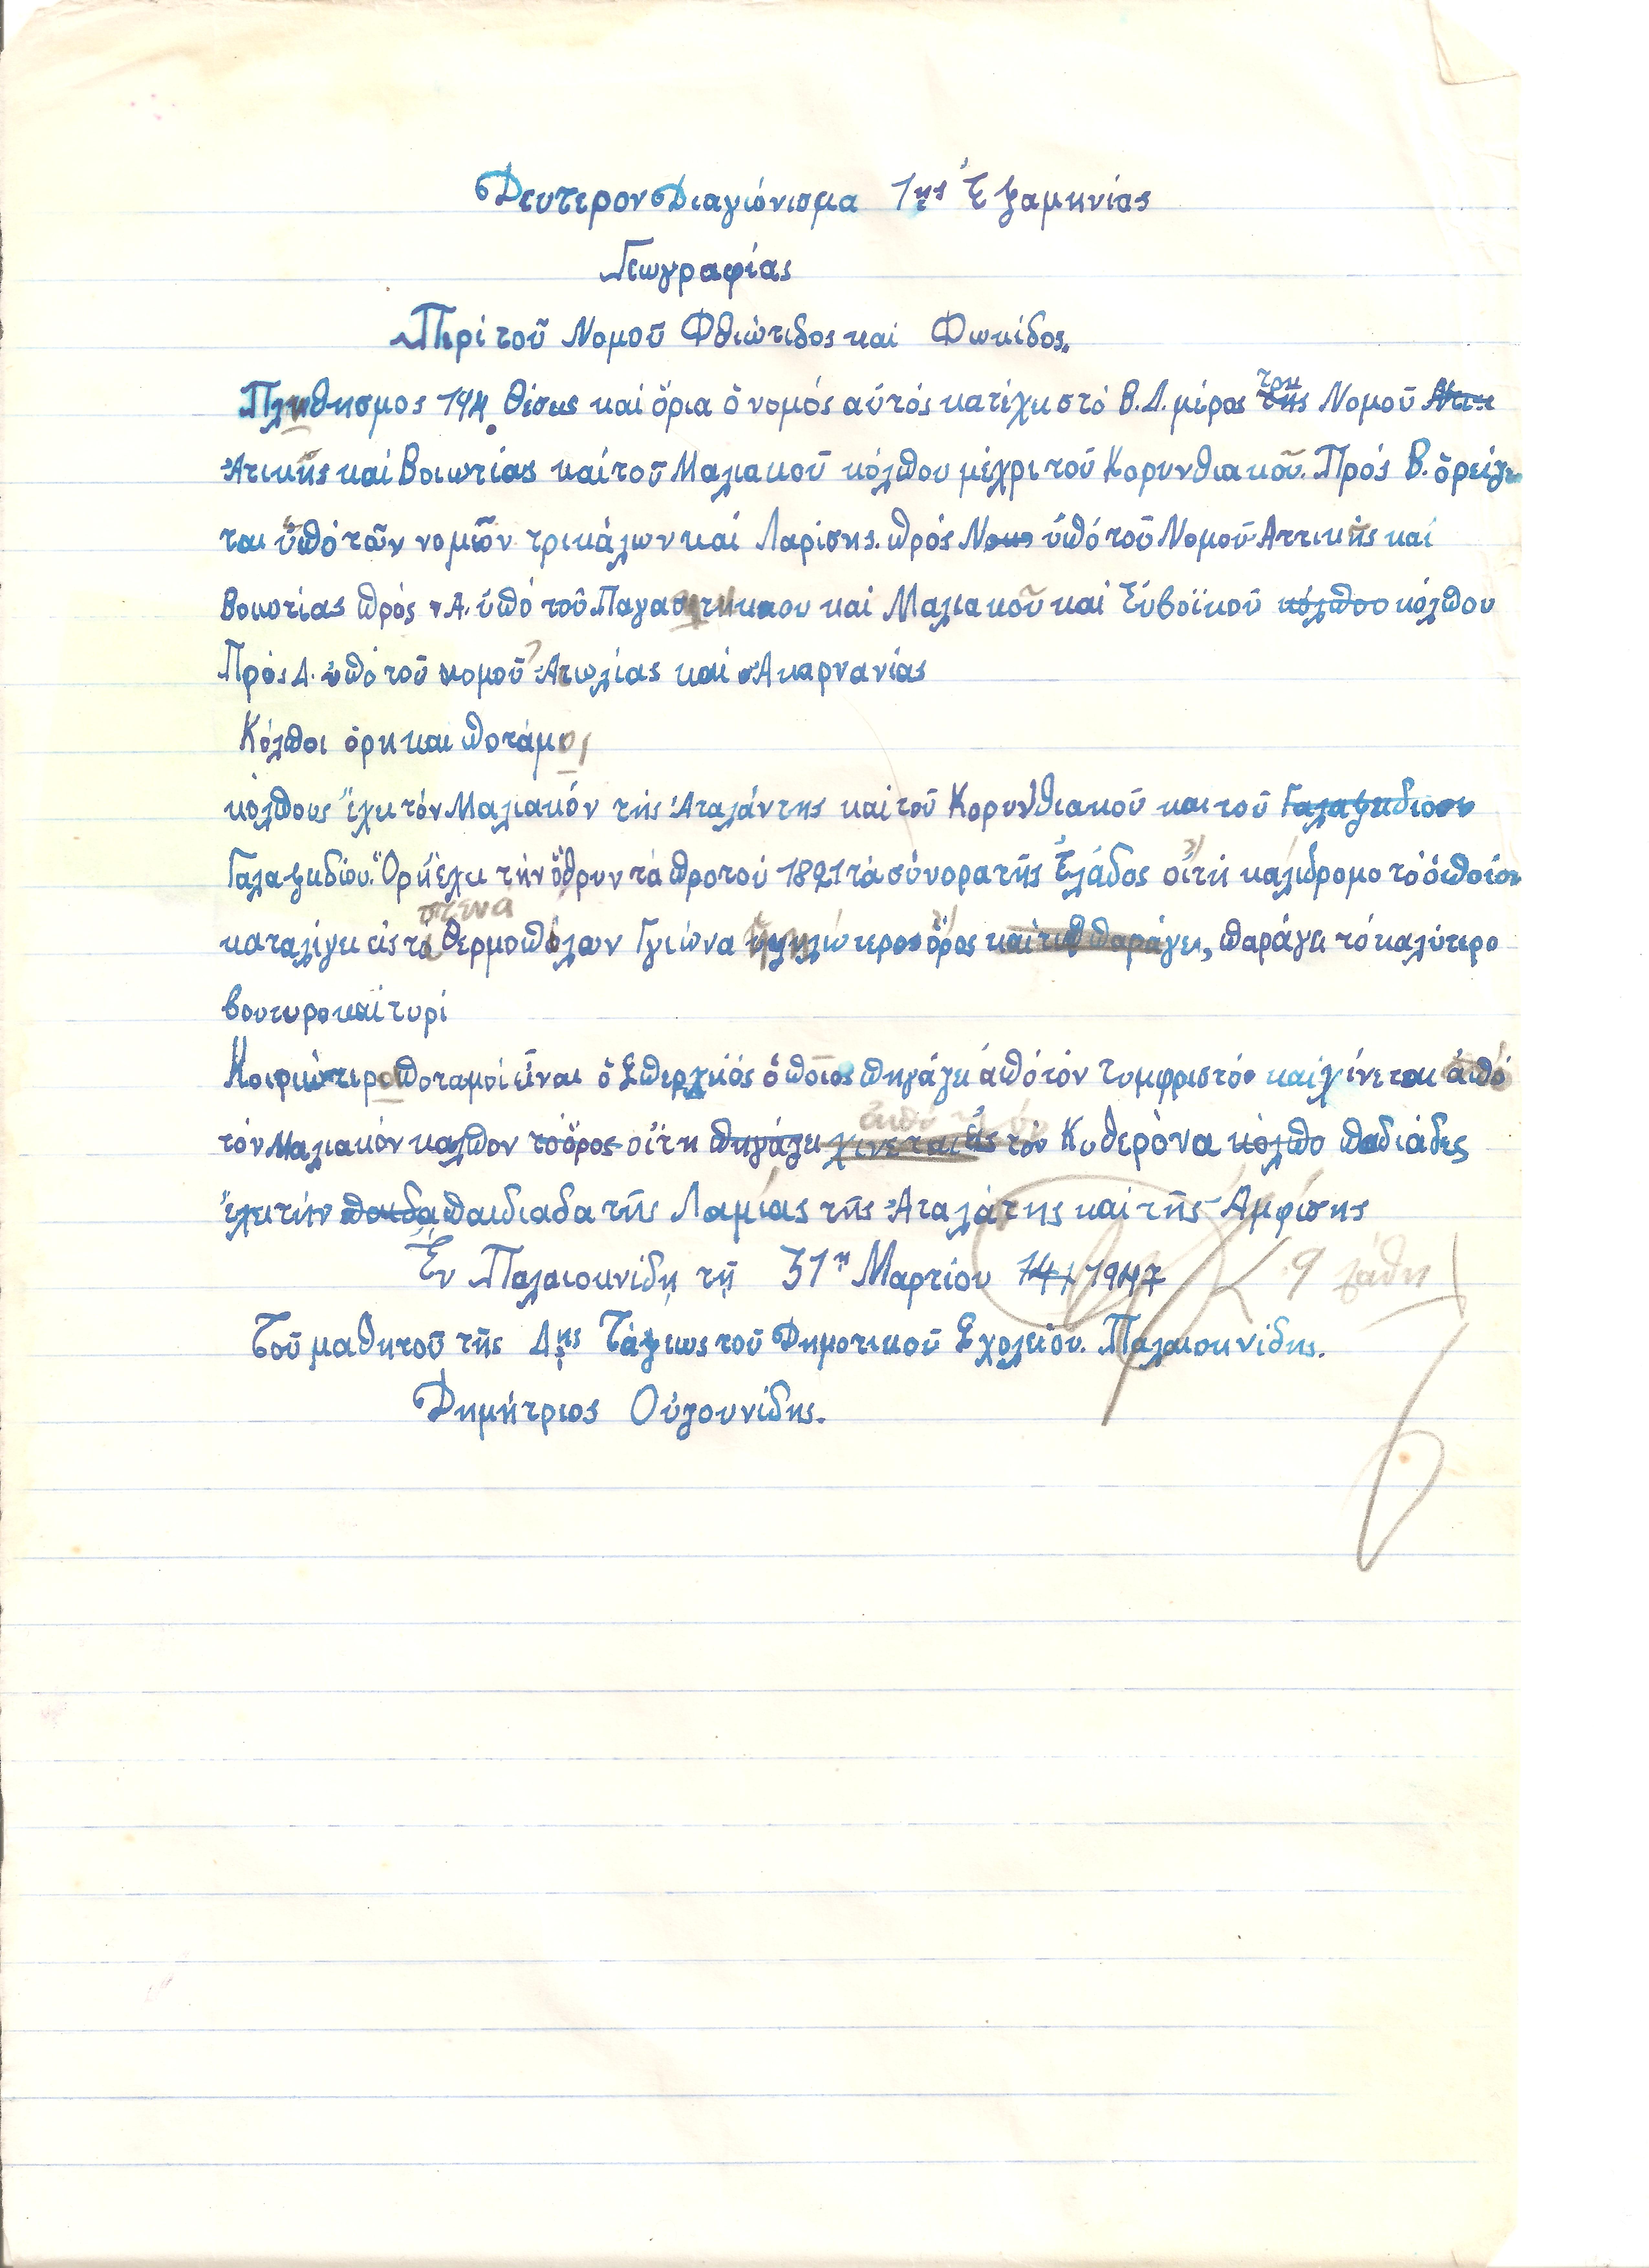 Δευτερον Διαγώνισμα 1ης Ἑξαμηνίας
Γεωγραφίας
Περί τοῦ Νομοῦ Φθιώτιδος καί Φωκίδος.
Πληθησμος 144. Θέσεις καί ὅρια ὁ νομός αὐτός κατέχει στό Β.Δ. μέρος της του Νομοῦ
Ἀτικῆς καί Βοιωτίας καί τοῦ Μαλιακοῦ κόλπου μέχρι τοῦ Κορυνθιακοῦ. Πρός Β. ὁρείζε
ται ὑπό τῶν νομῶν τρικάλων καί Λαρίσης. πρός Ν ὑπό τοῦ Νομοῦ Ἀττικῆς καί
Βοιοτίας πρός Α. ὑπό τοῦ καί Μαλιακοῦ καί Εὐβοϊκοῦ κόλπου κόλπου
Πρός Δ. ὑπό τοῦ νομοῦ Ἀτωλίας καί Ἀκαρνανίας
Κόλποι ὄρη και ποτάμοι
κόλπους ἔχει τόν Μαλιακόν τῆς Ἀταλάντης καί τοῦ Κορυνθιακοῦ και τοῦ Γαλαξειδιου
Γαλαξειδίου. Ὄρη ἔχει τήν ὄθρυν τά προτού 1821 τά σύνορα τῆς Ἑλάδος οἴτη καλίδρομο τό ὁποίον
καταλίγει εἰς τά στενα Θερμοπύλων Γγιώνα ὑψηλώτερος ὄρος και παράγει, παράγει τό καλύτερο
βουτυρο καί τυρί
Κοιριώτεροι ποταμοί εἶναι ὁ Σπερχειός ὁποῖος πηγάζει ἀπό τόν τυμφριστό καί χίνεται ἀπό
τόν Μαλιακόν καλπον τό ὄρος οἴτη πηγάζει χινεται εἰς ἀπό τόν Κυθερόνα κόλπο πεδιάδες
ἔχει τήν παιδα παιδιαδα τῆς Λαμίας τῆς Ἀταλάτης καί τῆς Ἀμφίσης
Ἐν Παλαιοκνίδῃ τῇ 31ῃ Μαρτίου 14 1947 9 λάθη
Τοῦ μαθητοῦ τῆς Δης Τάξεως τοῦ Δημοτικοῦ Σχολείου. Παλαιοκνίδης.
Δημήτριος Οὐζουνίδης.